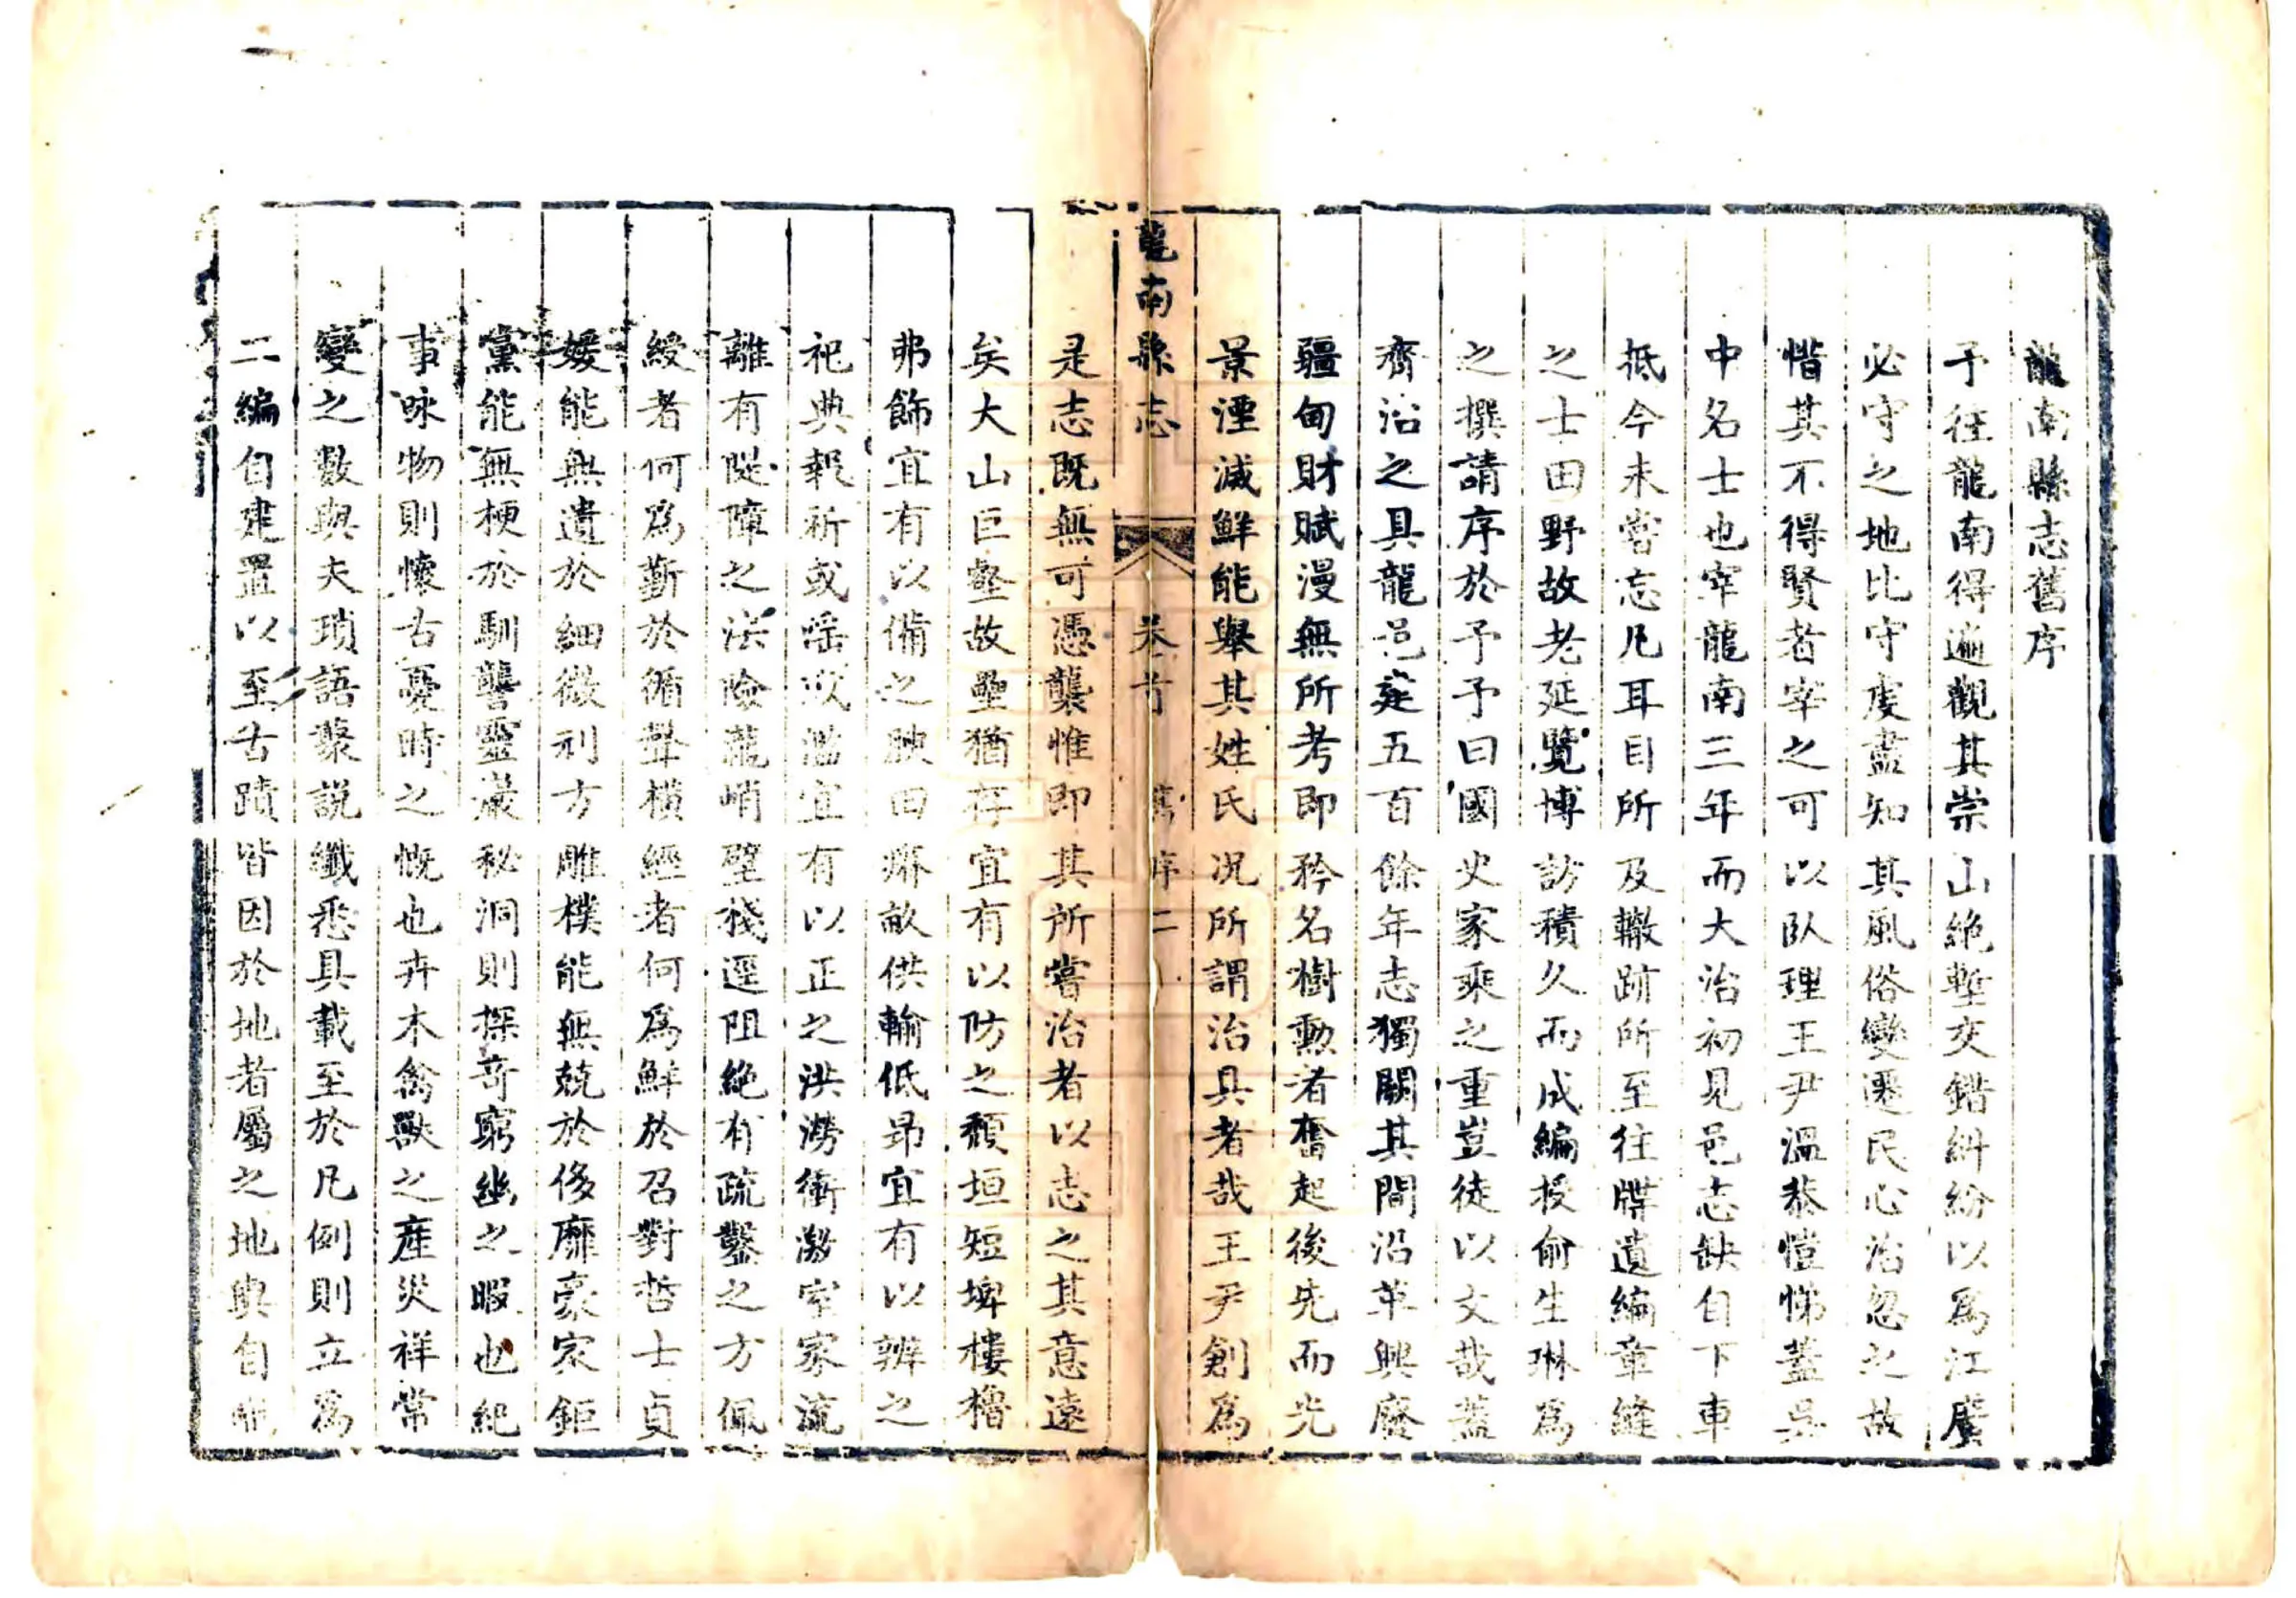 龍南縣志舊序
予往龍南得遍觀其崇山絶塹交錯糾紛以爲江廣
必守之地比守虔盡知其風俗變遷民心治忽之故
惜其不得賢者宰之可以臥理王尹溫恭愷悌蓋吳
中名士也宰龍南三年而大治初見邑志缺自下車
抵今未嘗忘凡耳目所及轍跡所至往牒遺編章縫
之士田野故老延覽博訪積久而成編授俞生琳爲
之撰請序於予予曰國史家乘之重豈徒以文哉蓋
齊治之具龍邑建五百餘年志獨闕其間沿革興廢
疆甸財賦漫無所考即矜名樹勳者奮起後先而光
景湮滅鮮能舉其姓氏况所謂治具者哉王尹創爲
龍南縣志 卷首 舊序 二
是志既無可憑襲惟即其所嘗治者以志之其意遠
矣大山巨壑故壘猶存宜有以防之頹垣短埤樓櫓
弗飾宜有以備之腴田瘠畝供輸低昂宜有以辨之
祀典報祈或淫以濫宜有以正之洪澇衝激室家流
離有隄障之法險巃峭壁棧逕阻絶有疏鑿之方佩
綬者何爲蘄於循聲橫經者何爲鮮於召對哲士貞
媛能無遺於細微利方雕樸能無兢於侈靡豪宗鉅
黨能無梗於馴讋靈巖秘洞則探奇窮幽之暇也紀
事咏物則懷古憂時之慨也卉木禽獸之産災祥常
變之數與夫瑣語藂説纖悉具載至於凡例則立爲
二編自建置以至古蹟皆因於地者屬之地輿自